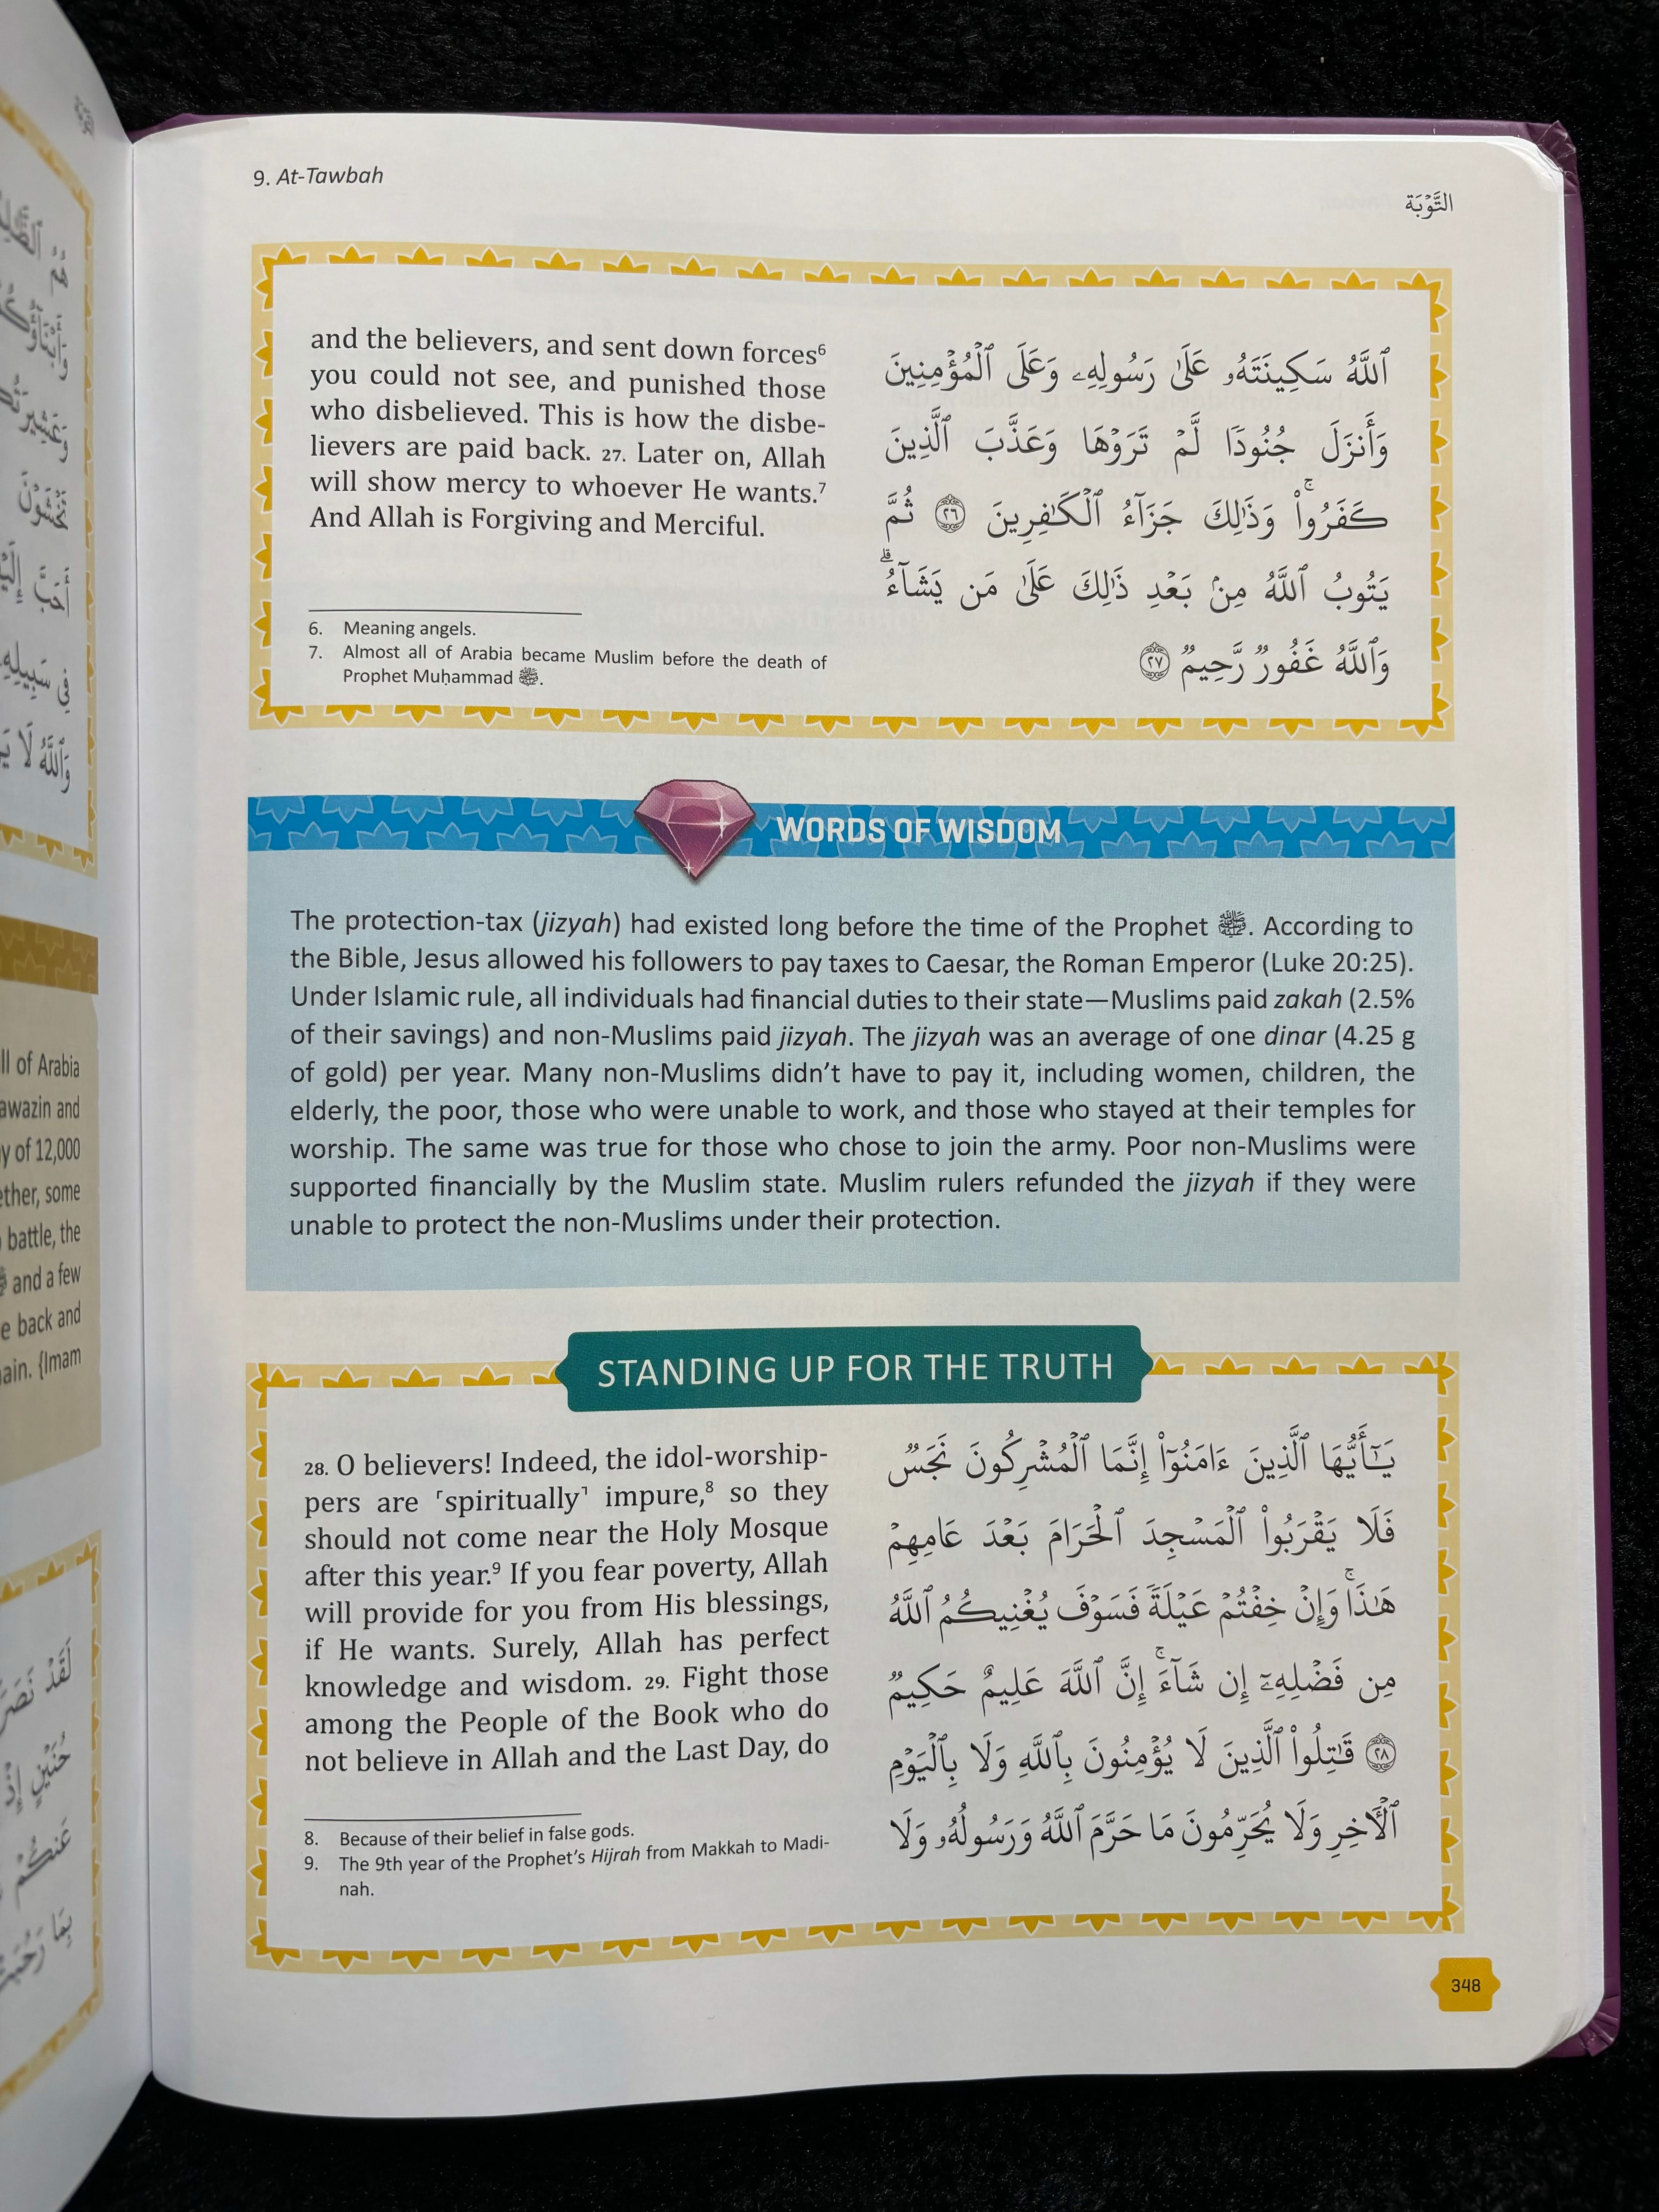 9. At-Tawbah
التَّوْبَة
and the believers, and sent down forces⁶
you could not see, and punished those
who disbelieved. This is how the disbe-
lievers are paid back. 27. Later on, Allah
will show mercy to whoever He wants.⁷
And Allah is Forgiving and Merciful.
6. Meaning angels.
7. Almost all of Arabia became Muslim before the death of
Prophet Muḥammad ﷺ.
ٱللَّهُ سَكِينَتَهُۥ عَلَىٰ رَسُولِهِۦ وَعَلَى ٱلْمُؤْمِنِينَ
وَأَنزَلَ جُنُودًا لَّمْ تَرَوْهَا وَعَذَّبَ ٱلَّذِينَ
كَفَرُوا۟ ۚ وَذَٰلِكَ جَزَآءُ ٱلْكَـٰفِرِينَ ٢٦ ثُمَّ
يَتُوبُ ٱللَّهُ مِنۢ بَعْدِ ذَٰلِكَ عَلَىٰ مَن يَشَآءُ ۗ
وَٱللَّهُ غَفُورٌ رَّحِيمٌ ٢٧
WORDS OF WISDOM
The protection-tax (jizyah) had existed long before the time of the Prophet ﷺ. According to
the Bible, Jesus allowed his followers to pay taxes to Caesar, the Roman Emperor (Luke 20:25).
Under Islamic rule, all individuals had financial duties to their state—Muslims paid zakah (2.5%
of their savings) and non-Muslims paid jizyah. The jizyah was an average of one dinar (4.25 g
of gold) per year. Many non-Muslims didn't have to pay it, including women, children, the
elderly, the poor, those who were unable to work, and those who stayed at their temples for
worship. The same was true for those who chose to join the army. Poor non-Muslims were
supported financially by the Muslim state. Muslim rulers refunded the jizyah if they were
unable to protect the non-Muslims under their protection.
STANDING UP FOR THE TRUTH
28. O believers! Indeed, the idol-worship-
pers are ˹spiritually˺ impure,⁸ so they
should not come near the Holy Mosque
after this year.⁹ If you fear poverty, Allah
will provide for you from His blessings,
if He wants. Surely, Allah has perfect
knowledge and wisdom. 29. Fight those
among the People of the Book who do
not believe in Allah and the Last Day, do
8. Because of their belief in false gods.
9. The 9th year of the Prophet's Hijrah from Makkah to Madi-
nah.
يَـٰٓأَيُّهَا ٱلَّذِينَ ءَامَنُوٓا۟ إِنَّمَا ٱلْمُشْرِكُونَ نَجَسٌ
فَلَا يَقْرَبُوا۟ ٱلْمَسْجِدَ ٱلْحَرَامَ بَعْدَ عَامِهِمْ
هَـٰذَا ۚ وَإِنْ خِفْتُمْ عَيْلَةً فَسَوْفَ يُغْنِيكُمُ ٱللَّهُ
مِن فَضْلِهِۦٓ إِن شَآءَ ۚ إِنَّ ٱللَّهَ عَلِيمٌ حَكِيمٌ
٢٨ قَـٰتِلُوا۟ ٱلَّذِينَ لَا يُؤْمِنُونَ بِٱللَّهِ وَلَا بِٱلْيَوْمِ
ٱلْـَٔاخِرِ وَلَا يُحَرِّمُونَ مَا حَرَّمَ ٱللَّهُ وَرَسُولُهُۥ وَلَا
348
ll of Arabia
awazin and
y of 12,000
ether, some
battle, the
and a few
e back and
ain. {Imam